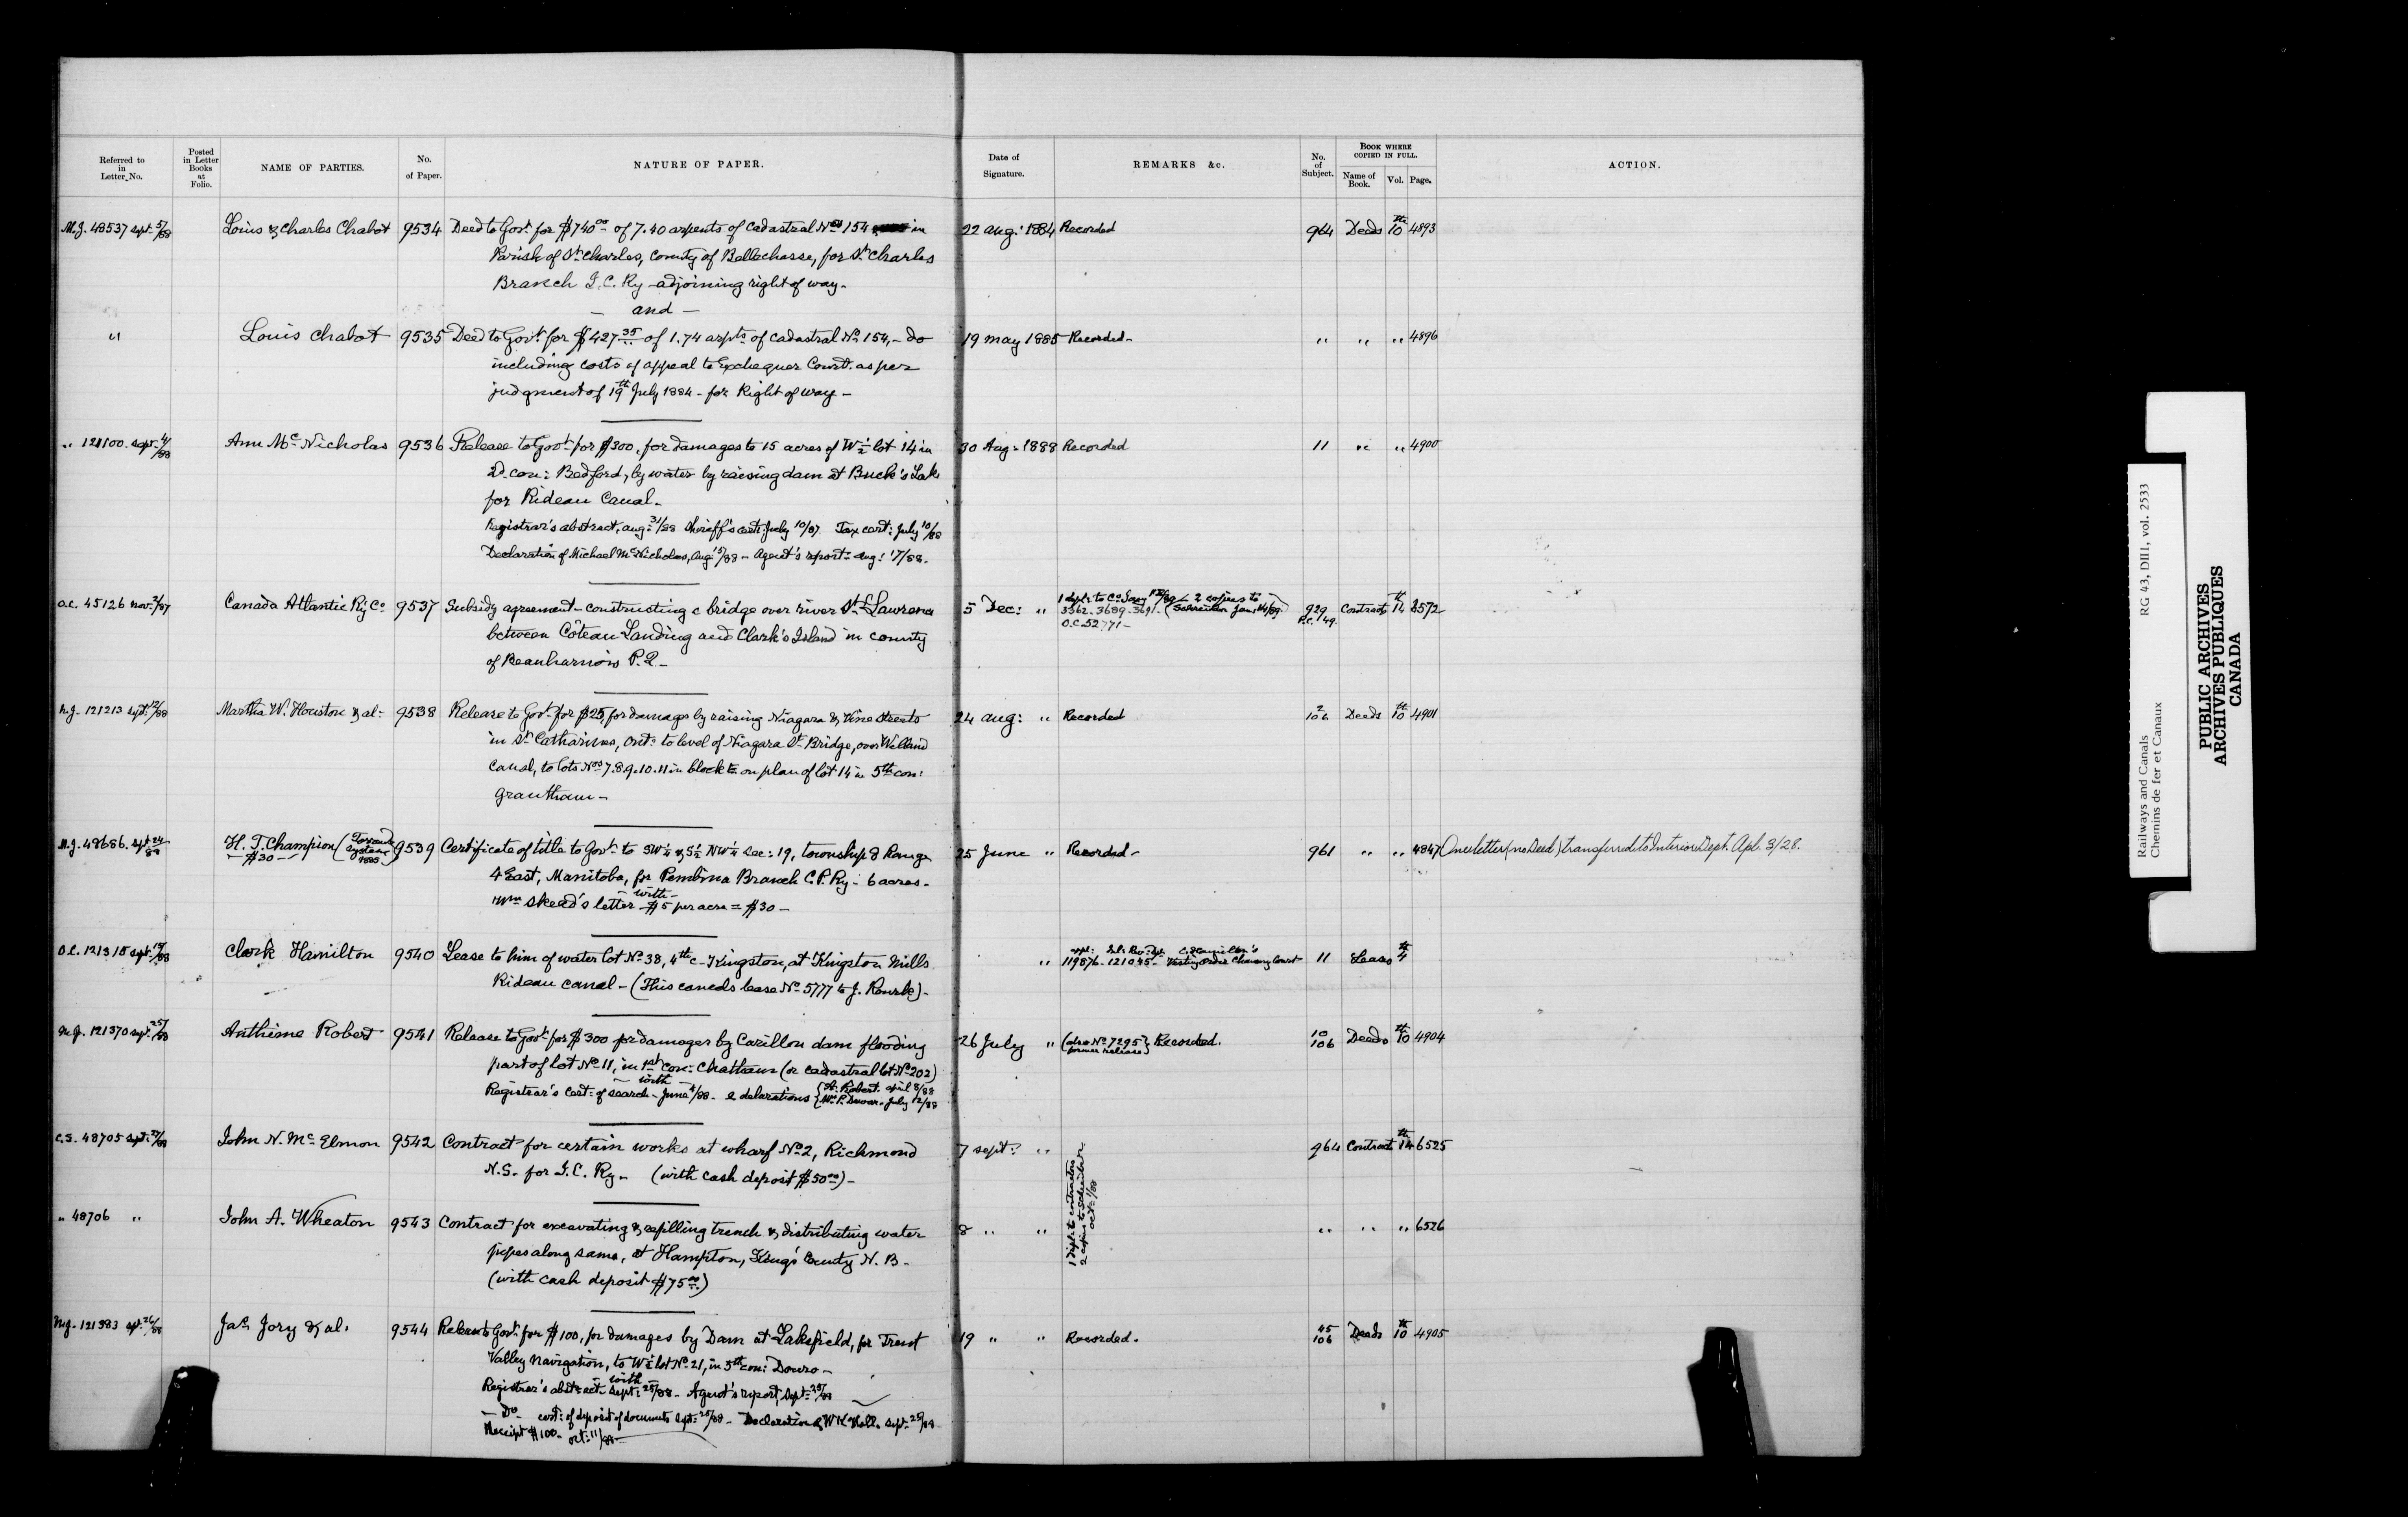 Referred to in Letter No.
Posted in Letter Books at Folio.
NAME OF PARTIES.
No. of Paper.
NATURE OF PAPER.
Date of Signature.
REMARKS &c.
No. of Subject.
BOOK WHERE COPIED IN FULL.
Name of Book.
Vol.
Page.
ACTION.
M.J. 48537 Sept. 5/88 Louis & Charles Chabot 9534 Deed to Govt. for $740.00 of 7.40 arpents of Cadastral Nos 154 in 22 Aug: 1884 Recorded 964 Deeds 10th 4893
Parish of St. Charles, County of Bellechasse, for St. Charles
Branch I.C. Ry - adjoining right of way -
- and -
" Louis Chabot 9535 Deed to Govt. for $427.35 of 1.74 arpts of cadastral No 154, - do 19 May 1885 Recorded - " " " 4896
including costs of appeal to Exchequer Court. as per
judgment of 19th July 1884 - for Right of way -
" 121100. Sept. 4/88 Ann McNicholas 9536 Release to Govt. for $300, for damages to 15 acres of W 1/2 lot 14 in 30 Aug: 1888 Recorded 11 " " 4900
2d con: Bedford, by water by raising dam at Buck's Lake
for Rideau Canal -
Registrar's abstract, Aug: 31/88 Sheriff's cert: July 10/87 Tax cert: July 10/88
Declaration of Michael McNicholas, Aug: 15/88 - Agent's report: Aug: 17/88.
O.C. 45126 Nov. 2/87 Canada Atlantic Ry Co. 9537 Subsidy agreement - constructing a bridge over river St. Lawrence 5 Dec: " 1 dupl: to Co. 2 copies to 3562. 3689. 3691. O.C. 52771 - 929 P.C. 149 Contracts 14th 8572
between Côteau Landing and Clark's Island in county
of Beauharnois P.Q. -
M.J. 121213 Sept. 12/88 Martha W. Houston & al: 9538 Release to Govt. for $25, for damages by raising Niagara & Vine Streets 24 Aug: " Recorded 2/106 Deeds 10th 4901
in St. Catharines, Ont: to level of Niagara St. Bridge, over Welland
Canal, to lots Nos 7.8.9.10.11 in block E on plan of lot 14 in 5th con:
Grantham -
M.J. 48686. Sept. 24/88 H. T. Champion (Torrens System 1885) - $30 - 9539 Certificate of title to Govt. to SW 1/4 & S 1/2 NW 1/4 Sec: 19, township 8 Range 25 June " Recorded - 961 " " 4847 One letter (no Deed) transferred to Interior Dept. Apl. 3/28.
4 East, Manitoba, for Pembina Branch C.P. Ry - 6 acres -
- with -
Wm Skead's letter - $5 per acre = $30 -
O.C. 121315 Sept. 19/88 Clark Hamilton 9540 Lease to him of water lot No 38, 4th c - Kingston, at Kingston Mills " 119876 - 121045 - Vesting Order Chancery Court 11 Leases 4th
Rideau Canal - (This cancels lease No 5777 to J. Rourke) -
M.J. 121370 Sept. 25/88 Anthime Robert 9541 Release to Govt. for $300 for damages by Carillon dam flooding 26 July " (also No 7295 former release) Recorded. 10/106 Deeds 10th 4904
part of lot No 11, in 1st con: Chatham (or cadastral lot No 202)
- with -
Registrar's Cert: of search - June 4/88 - 2 declarations {A. Robert. April 8/88
{Wm P. Dewar - July 12/88
C.S. 48705 Sept. 27/88 John N. McElmon 9542 Contract for certain works at wharf No 2, Richmond 7 Sept: " 964 Contracts 14th 6525
N.S. for I.C. Ry - (with cash deposit $50.00) -
1 dupl: to contractors
2 copies to Schreiber
Oct: 1/88
" 48706 " John A. Wheaton 9543 Contract for excavating & refilling trench & distributing water 8 " " " " " 6526
pipes along same, at Hampton, King's County N.B. -
(with cash deposit $75.00)
M.J. 121383 Sept. 26/88 Jas. Jory & al. 9544 Release to Govt. for $100, for damages by Dam at Lakefield, for Trent 19 " " Recorded. 45/106 Deeds 10th 4905
Valley Navigation, to W 1/2 lot No 21, in 5th con: Douro -
with
Registrar's abstract Sept: 25/88 - Agent's report, Sept: 25/88
- Do - cert: of deposit of documents Sept: 25/88 - Declaration of W.H. Hall. Sept. 25/88 -
Receipt $100 - Oct: 11/88
RG 43, DIII1, vol. 2533
Railways and Canals
Chemins de fer et Canaux
PUBLIC ARCHIVES
ARCHIVES PUBLIQUES
CANADA